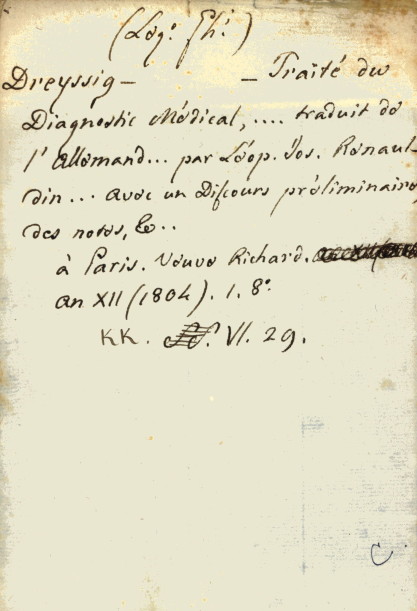 (Log.° Fh.°)
Dreyssig — — Traité du
Diagnostic Médical, .... traduit de
l'Allemand... par Léop. Jos. Renaul-
din... avec un Discours préliminaire,
des notes, &..
à Paris. Veuve Richard.
an XII (1804). 1. 8.°
KK. VI. 29.
C